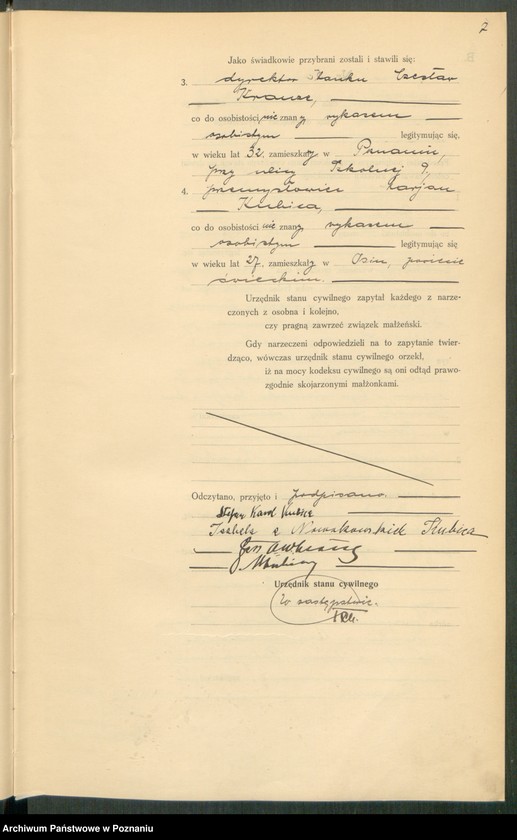 7
Jako świadkowie przybrani zostali i stawili się:
3. dyrektor banku Czesław
co do osobistości nie znany, wykazem
osobistym legitymując się,
w wieku lat 32, zamieszkały w Poznaniu,
przy ulicy Szkolnej 9,
4. przemysłowiec Marjan
Kubica,
co do osobistości nie znany, wykazem
osobistym legitymując się
w wieku lat 27, zamieszkały w Osiu, powiecie
świeckim.
Urzędnik stanu cywilnego zapytał każdego z narze-
czonych z osobna i kolejno,
czy pragną zawrzeć związek małżeński.
Gdy narzeczeni odpowiedzieli na to zapytanie twier-
dząco, wówczas urzędnik stanu cywilnego orzekł,
iż na mocy kodeksu cywilnego są oni odtąd prawo-
zgodnie skojarzonymi małżonkami.
Odczytano, przyjęto i podpisano.
Stefan Karol
z Nowakowskich
Urzędnik stanu cywilnego
W zastępstwie.
Archiwum Państwowe w Poznaniu